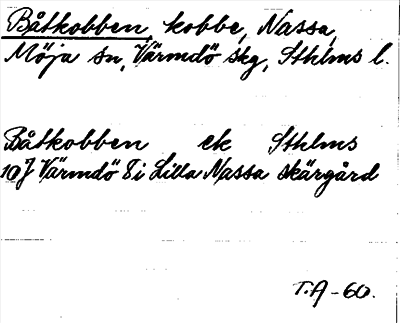 Båtkobben, kobbe, Nassa,
Möja sn, Värmdö skg, Sthlms l.
Båtkobben ek Sthlms
10J Värmdö 8 i Lilla Nassa skärgård
T.A-60.